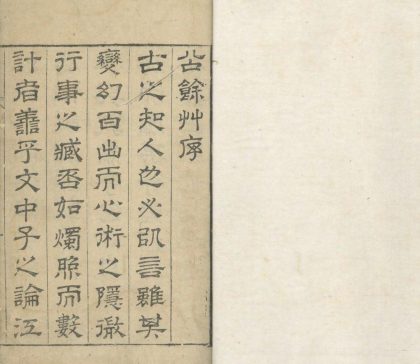 公餘艸序
古之知人也必即言雖其
變幻百出而心術之隱微
行事之臧否如燭照而數
計者譱乎文中子之論江